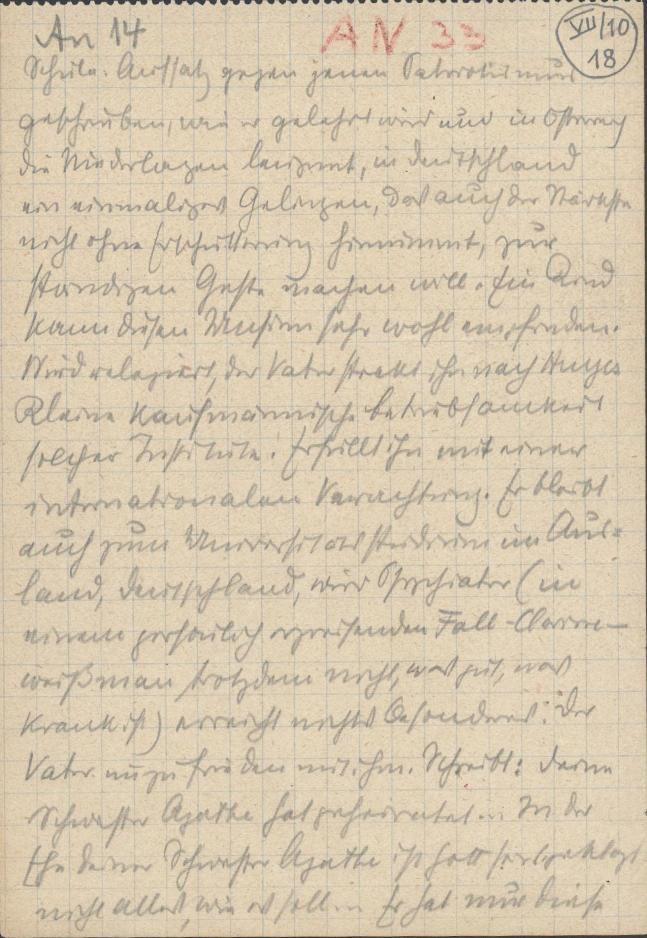 An 14
AN 33
VII/10
18
Schule. Aufsatz gegen jenen Patriotismus
geschrieben, wie er gelehrt wird und in Österreich
die Niederlagen, in Deutschland
ein einmaliges Gelingen, das auch der Stärkste
nicht ohne Erschütterung hinnimmt, zur
ständigen Geste machen will. Ein Kind
kann diesen Unsinn sehr wohl empfinden.
Wird relegiert, der Vater steckt ihn nach
Kleine kaufmännische Betriebsamkeit
solcher Institute. Erfüllt ihn mit einer
internationalen Verachtung. Er bleibt
auch zum Universitätsstudium im Aus=
land, Deutschland, wird Psychiater (in
einem persönlich ergreifenden Fall - Clarisse -
weiß man trotzdem nicht, was gut, was
krank ist) erreicht nichts Besonderes. Der
Vater unzufrieden mit ihm. Schreibt: Deine
Schwester Agathe hat geheiratet.. In der
Ehe deiner Schwester Agathe ist Gott sei's geklagt
nicht alles, wie es soll .. Er hat nur diese